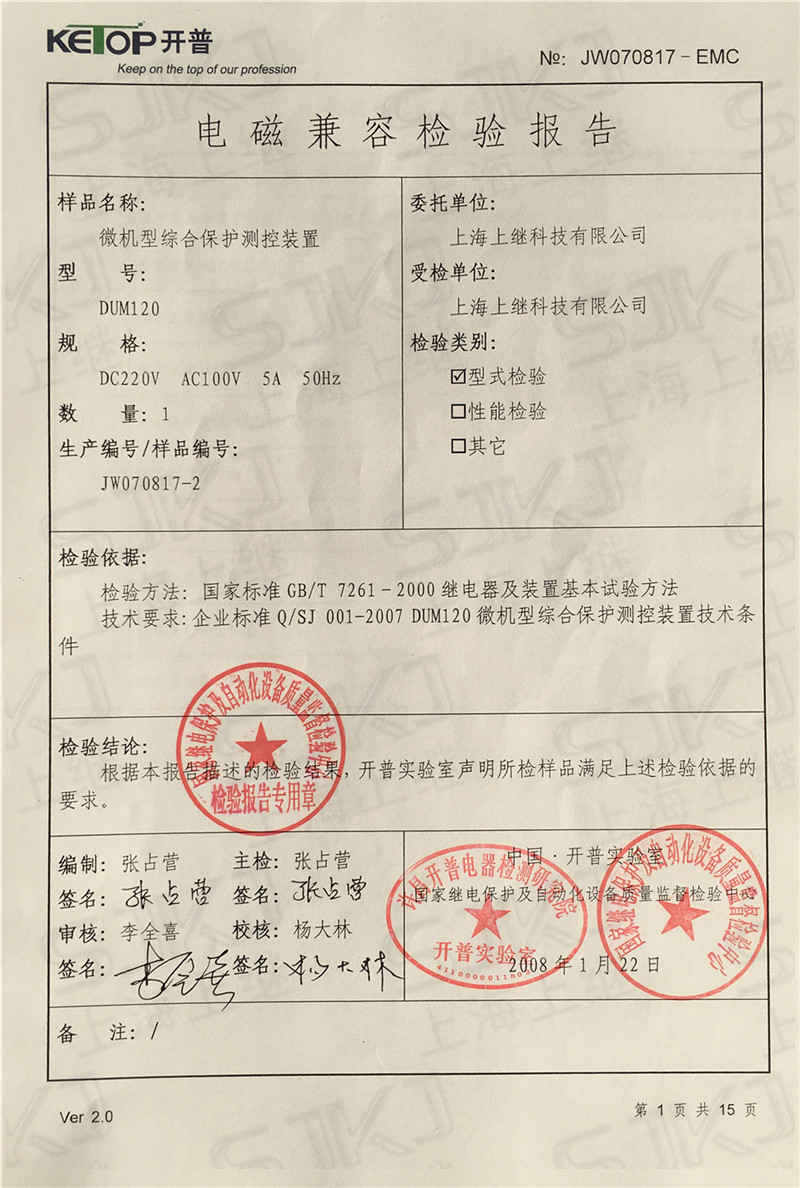 KETOP开普
Keep on the top of our profession
№: JW070817-EMC
电磁兼容检验报告
样品名称:
微机型综合保护测控装置
型 号:
DUM120
规 格:
DC220V AC100V 5A 50Hz
数 量: 1
生产编号/样品编号:
JW070817-2
委托单位:
上海上继科技有限公司
受检单位:
上海上继科技有限公司
检验类别:
☑型式检验
☐性能检验
☐其它
检验依据:
检验方法: 国家标准 GB/T 7261-2000 继电器及装置基本试验方法
技术要求: 企业标准 Q/SJ 001-2007 DUM120 微机型综合保护测控装置技术条
件
检验结论:
根据本报告描述的检验结果, 开普实验室声明所检样品满足上述检验依据的
要求。
国家继电保护及自动化设备质量监督检验中心
检验报告专用章
编制: 张占营 主检: 张占营
签名: 张占营 签名: 张占营
审核: 李全喜 校核: 杨大林
签名: 李全喜 签名: 杨大林
中国·开普实验室
国家继电保护及自动化设备质量监督检验中心
2008 年 1 月 22 日
许昌开普电器检测研究院
开普实验室
国家继电保护及自动化设备质量监督检验中心
备 注: /
Ver 2.0
第 1 页 共 15 页
SJKJ
上海上继